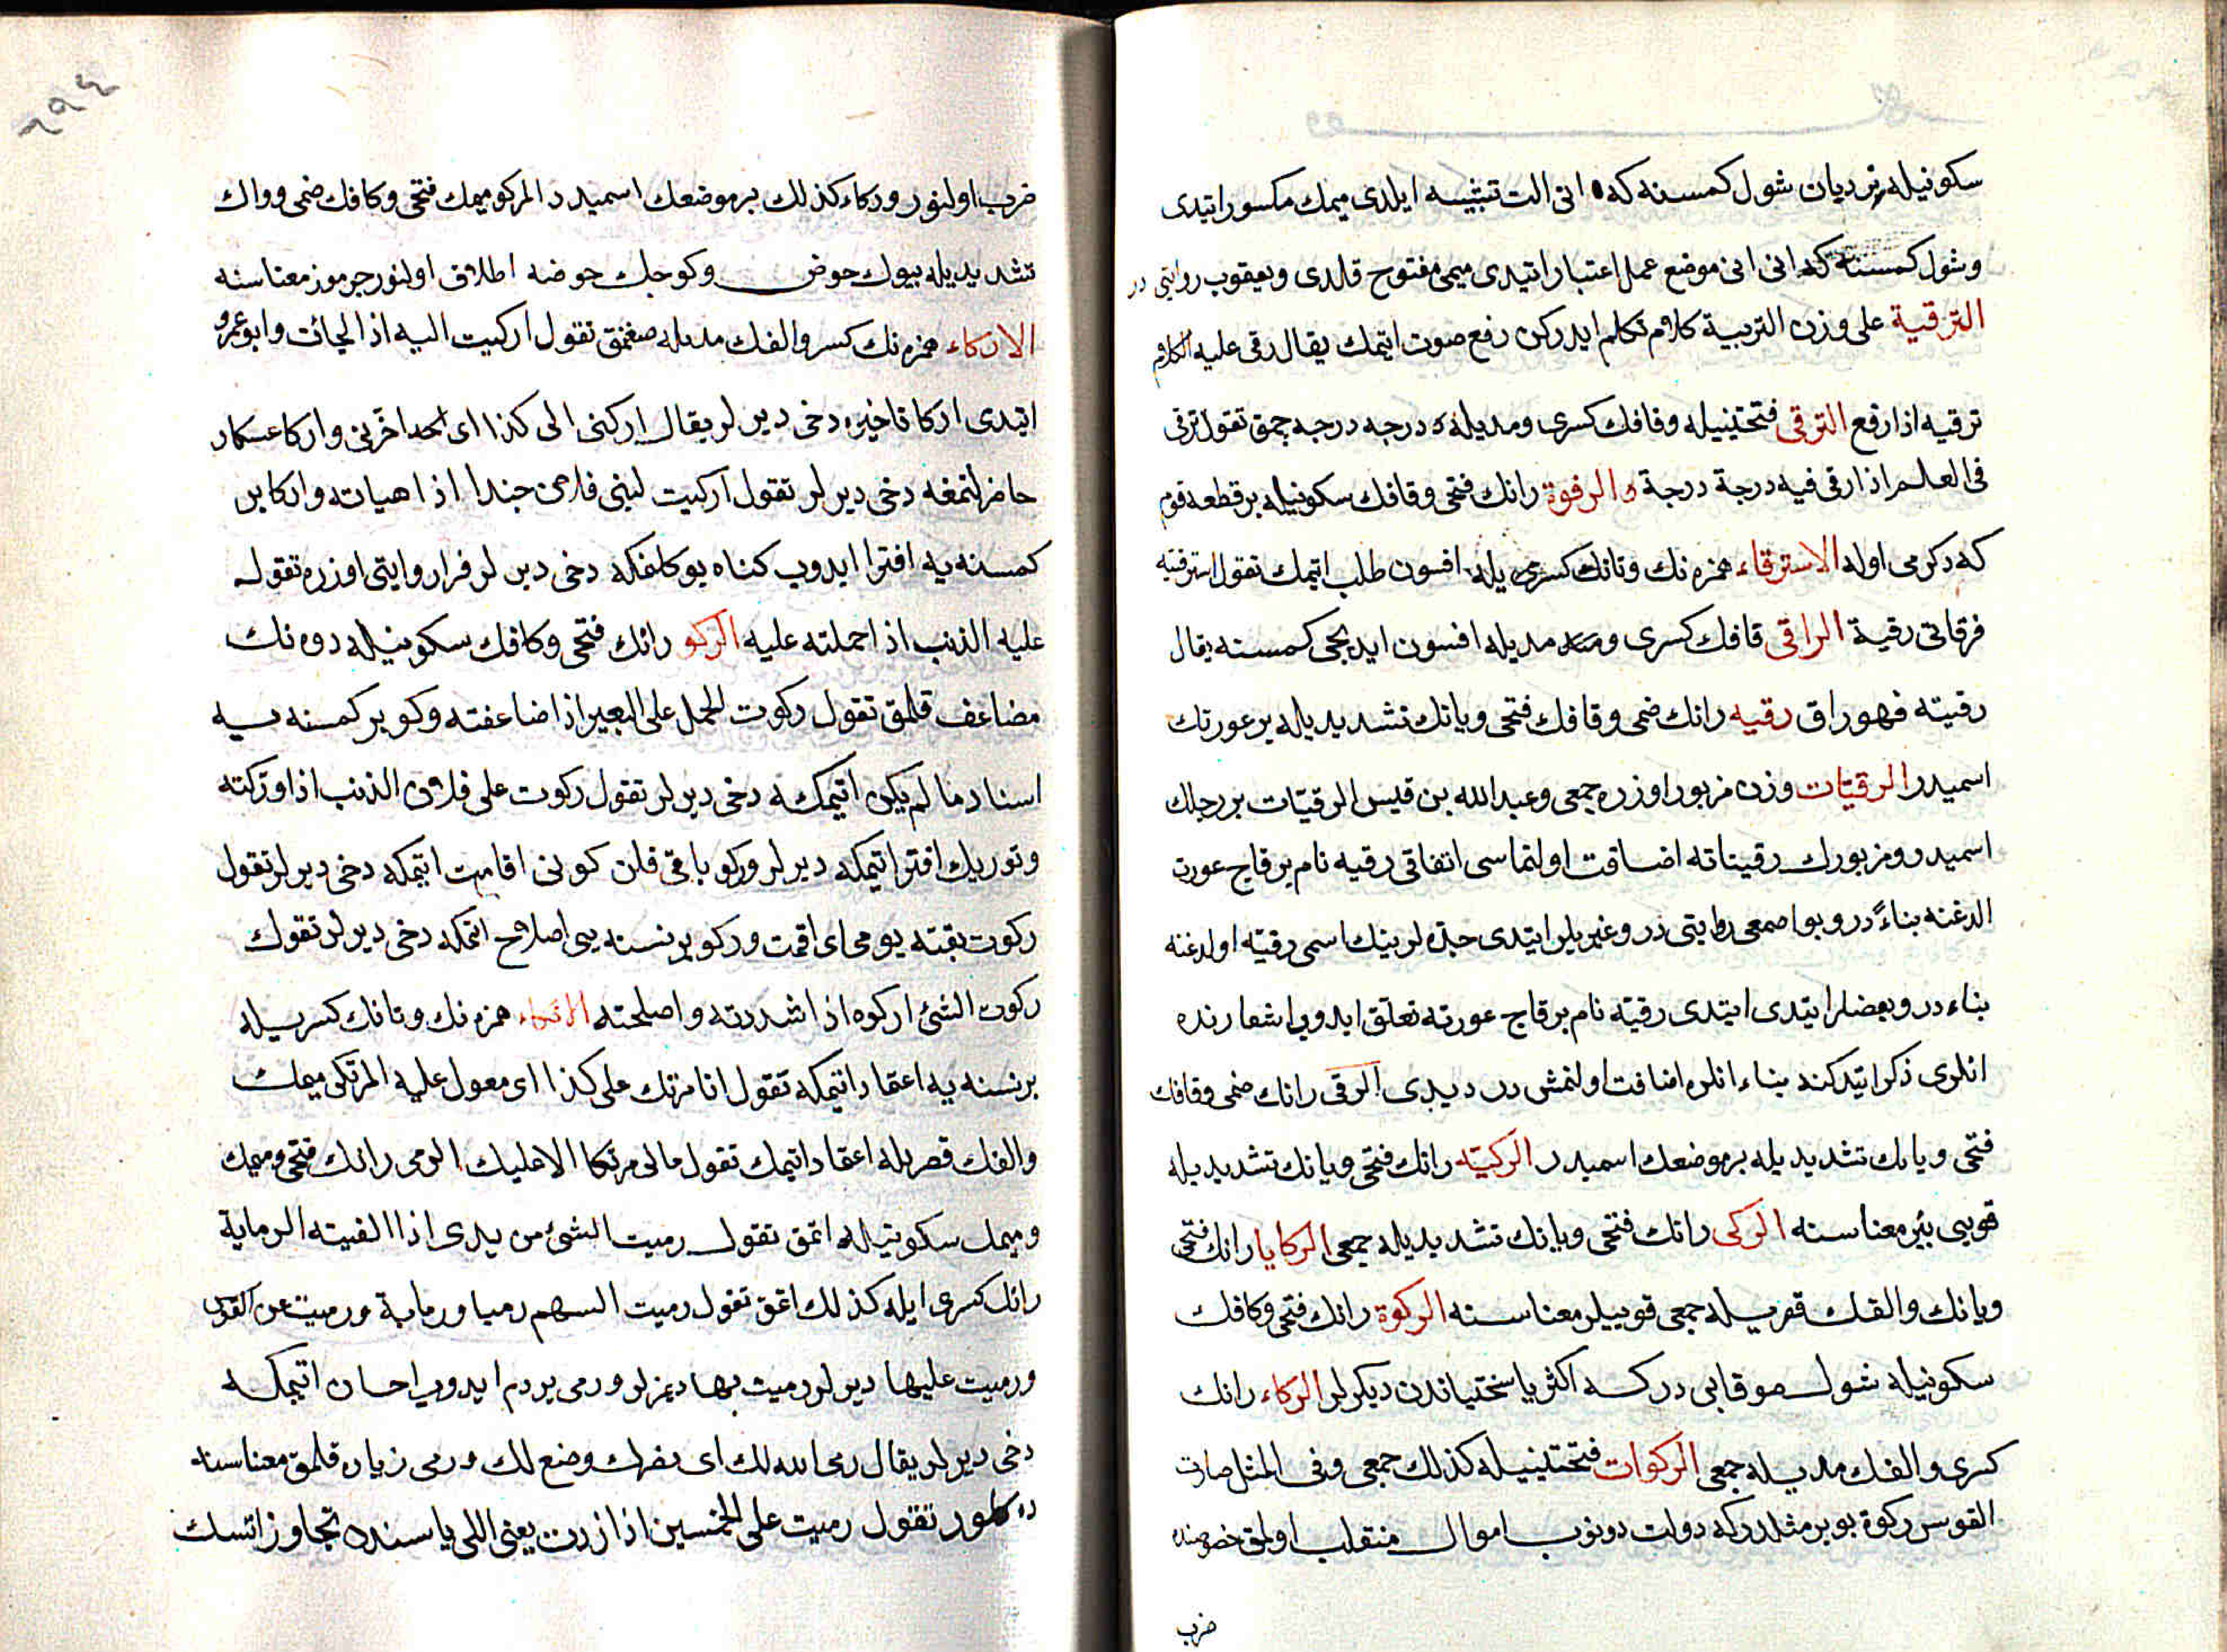 سكونيله نردبان شول كمسنه كه انى الت تشبيه ايلدى ميمك مكسور ايتدى
وشول كمسنه كه انى موضع عمل اعتبار ايتدى ميمى مفتوح قلدى ويعقوب روايتى در
الترقية على وزن التربية كلام تكلم ايدركن رفع صوت اتيمك يقال رقى عليه الكلام
ترقيه اذا رفع الترقى فتحتينيله وقافك كسرى ومديله درجه درجه چقمق تقول ترقى
فى العلم اذا رقى فيه درجة درجة والرقوة رانك فتحى وقافك سكونيله بر قطعه قوم
كه دكرمى اوله الاسترقاء همزه نك وتانك كسرى يله افسون طلب اتيمك تقول استرقيته
فرقانى رقية الراقى قافك كسرى ومديله افسون ايديجى كمسنه يقال
رقيته فهوراق رقيه رانك ضمى وقافك فتحى ويانك تشديديله بر عورتك
اسميدر الرقيات وزن مزبور اوزره جمعى وعبدالله بن قيس الرقيات بر رجلك
اسميدر ومزبورك رقيتاته اضافت اولنماسى اتفاقى رقيه نام بر قاچ عورت
الدغنه بناءً در وبو اصمعى روايتى در وغيريلر ايتدى جده لرينك اسمى رقيه اولدغنه
بناء در وبعضلر ايتدى ايتدى رقيه نام بر قاچ عورته تعلق ايدوب اشعارنده
انلرى ذكر ايتدكنه بناء انلره اضافت اولنمش در ديدى الرقى رانك ضمى وقافك
فتحى ويانك تشديديله بر موضعك اسميدر الركيه رانك فتحى ويانك تشديديله
قويى بئر معناسنه الركى رانك فتحى ويانك تشديديله جمعى الركايا رانك فتحى
ويانك والفك قصريله جمعى قوييلر معناسنه الركوة رانك فتحى وكافك
سكونيله شول صو قابى در كه اكثريا سختياندن ديكرلر الركاء رانك
كسرى والفك مديله جمعى الركوات فتحتينيله كذلك جمعى وفى المثل صارت
القوس ركوة بو بر مثلدر كه دولت دونوب اموال منقلب اولمق خصوصنده
ضرب
٦٩٤
ضرب اولنور وركاء كذلك بر موضعك اسميدر المركو ميمك فتحى وكافك ضمى وواك
تشديديله بيوك حوض وكوچك حوضه اطلاق اولنور جرموز معناسنه
الاركاء همزه نك كسر والفك مديله صغنمق تقول اركيت اليه اذا لجائت وابو عمرو
ايتدى اركا تاخيره دخى ديرلر يقال اركنى الى كذا اى اخرنى واركا عسكر
حاضر لنمغه دخى ديرلر تقول اركيت لبنى فلان جندا اذا هياته واركا بر
كمسنه يه افترا ايدوب كناه يوكلمكه دخى ديرلر فرا روايتى اوزره تقول
عليه الذنب اذا حملته عليه الركو رانك فتحى وكافك سكونيله دوه نك
مضاعف قلمق تقول ركوت الحمل على البعير اذا ضاعفته وركو بر كمسنه يه
اسناد ما لم يكن اتيمكه دخى ديرلر تقول ركوت على فلان الذنب اذا وركته
وتوريك افترا اتيمكه ديرلر وركو باقى قلن كونى اقامت اتيمكه دخى ديرلر تقول
ركوت بقية يومى اى اقمت وركو بر نسنه يى اصلاح اتمكه دخى ديرلر تقول
ركوت الشئ اركوه اذا شددته واصلحته الارتكاء همزه نك وتانك كسريله
بر نسنه يه اعتماد اتيمكه تقول انا مرتك على كذا اى معول عليه المرتكى ميمك
والفك قصريله اعتماد اتيمك تقول مالى مرتكا الا عليك الرمى رانك فتحى وميمك
وميمك سكونيله اتمق تقول رميت الشئ من يدى اذا القيته الرماية
رانك كسرى ايله كذلك اتمق تقول رميت السهم رميا ورماية ورميت عن القوس
ورميت عليها ديرلر رميت بها ديمزلر ورمى يردم ايدوب احسان اتيمكه
دخى ديرلر يقال رمى الله لك اى نصرك وضع لك ورمى زياده قلمق معناسنه
در تقول رميت على الخمسين اذا زدت يعنى اللى ياسنده تجاوز اتسك